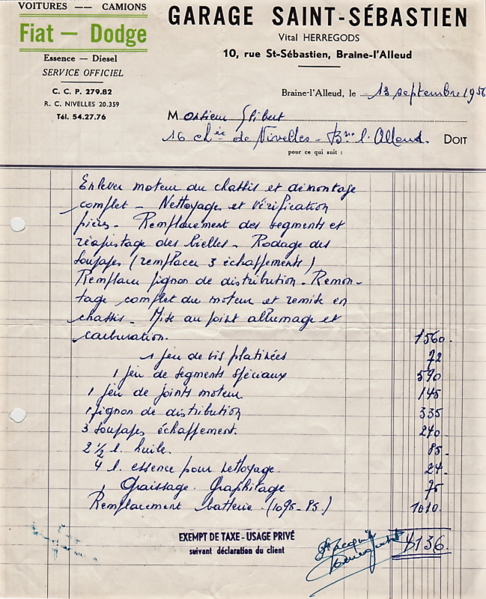 VOITURES — CAMIONS
Fiat — Dodge
Essence — Diesel
SERVICE OFFICIEL
C. C. P. 279.82
R. C. NIVELLES 20.359
Tél. 54.27.76
GARAGE SAINT-SÉBASTIEN
Vital HERREGODS
10, rue St-Sébastien, Braine-l'Alleud
Braine-l'Alleud, le 13 septembre 195
Monsieur
16 ch ée de Nivelles - Bne l'Alleud. DOIT
pour ce qui suit :
Enlever moteur du chassis et démontage
complet - Nettoyage et vérification
pièces - Remplacement des segments et
réajustage des bielles - Rodage des
soupapes (remplacer 3 échappements)
Remplacer pignon de distribution - Remon-
tage complet du moteur et remise en
chassis - Mise au point allumage et
carburation. 1560.-
1 jeu de vis platinées 72
1 jeu de segments spéciaux 590
1 jeu de joints moteur 145
1 pignon de distribution 335
3 soupapes échappement. 240.-
2 ½ l. huile. 85.-
4 l. essence pour nettoyage. 24.-
1 Graissage Graphitage 75
Remplacement batterie (1095-85) 1010.-
EXEMPT DE TAXE - USAGE PRIVÉ
suivant déclaration du client
4136.-